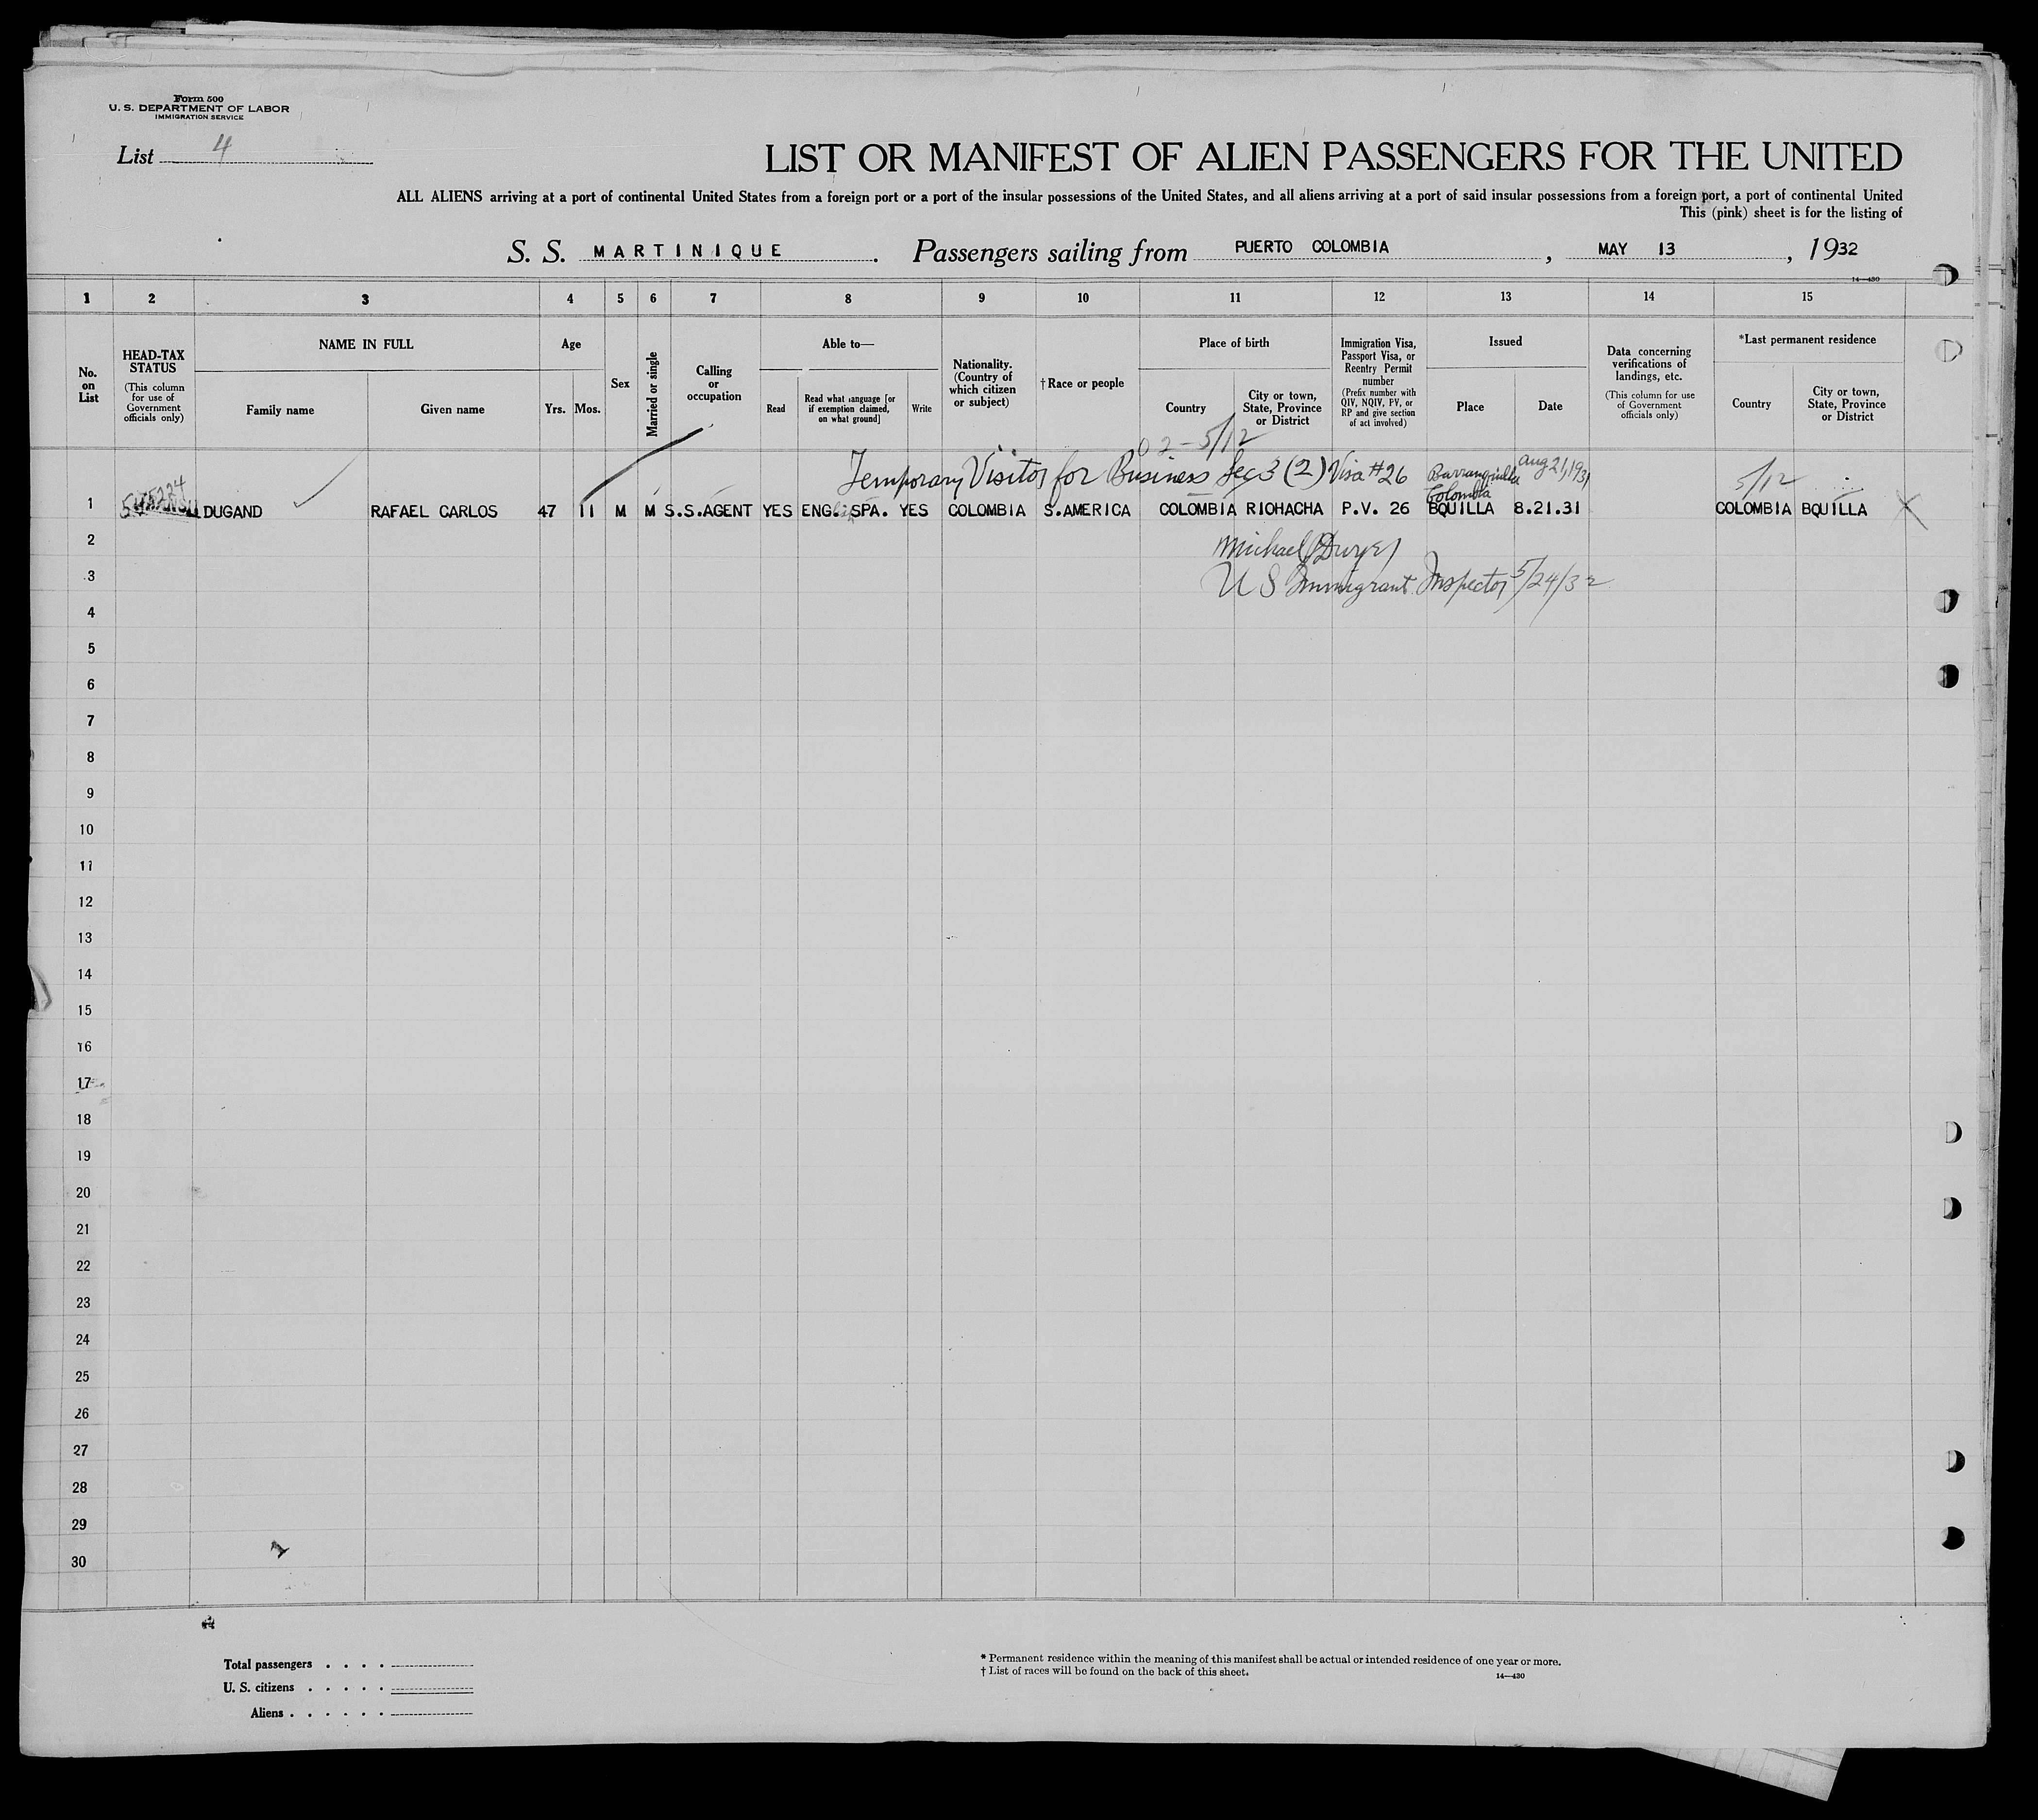 Form 500
U. S. DEPARTMENT OF LABOR
IMMIGRATION SERVICE
List 4
LIST OR MANIFEST OF ALIEN PASSENGERS FOR THE UNITED
ALL ALIENS arriving at a port of continental United States from a foreign port or a port of the insular possessions of the United States, and all aliens arriving at a port of said insular possessions from a foreign port, a port of continental United
This (pink) sheet is for the listing of
S. S. MARTINIQUE. Passengers sailing from PUERTO COLOMBIA, MAY 13, 1932
14—430
1 2 3 4 5 6 7 8 9 10 11 12 13 14 15
No. on List
HEAD-TAX STATUS
(This column for use of Government officials only)
NAME IN FULL
Family name
Given name
Age
Yrs.
Mos.
Sex
Married or single
Calling or occupation
Able to—
Read
Read what language [or if exemption claimed, on what ground]
Write
Nationality. (Country of which citizen or subject)
†Race or people
Place of birth
Country
City or town, State, Province or District
Immigration Visa, Passport Visa, or Reentry Permit number
(Prefix number with QIV, NQIV, PV, or RP and give section of act involved)
Issued
Place
Date
Data concerning verifications of landings, etc.
(This column for use of Government officials only)
*Last permanent residence
Country
City or town, State, Province or District
02-5/12
Temporary Visitor for Business Sec 3 (2) Visa #26 Barranquilla Colombia Aug 21, 1931
5/12
1 DUGAND RAFAEL CARLOS 47 11 M M S.S.AGENT YES ENG. SPA. YES COLOMBIA S.AMERICA COLOMBIA RIOHACHA P.V. 26 BQUILLA 8.21.31 COLOMBIA BQUILLA X
2 Michael Dwyer
3 U S Immigrant Inspector 5/24/32
4
5
6
7
8
9
10
11
12
13
14
15
16
17
18
19
20
21
22
23
24
25
26
27
28
29
30
Total passengers . . . .
U. S. citizens . . . . .
Aliens . . . . . .
* Permanent residence within the meaning of this manifest shall be actual or intended residence of one year or more.
† List of races will be found on the back of this sheet.
14—430